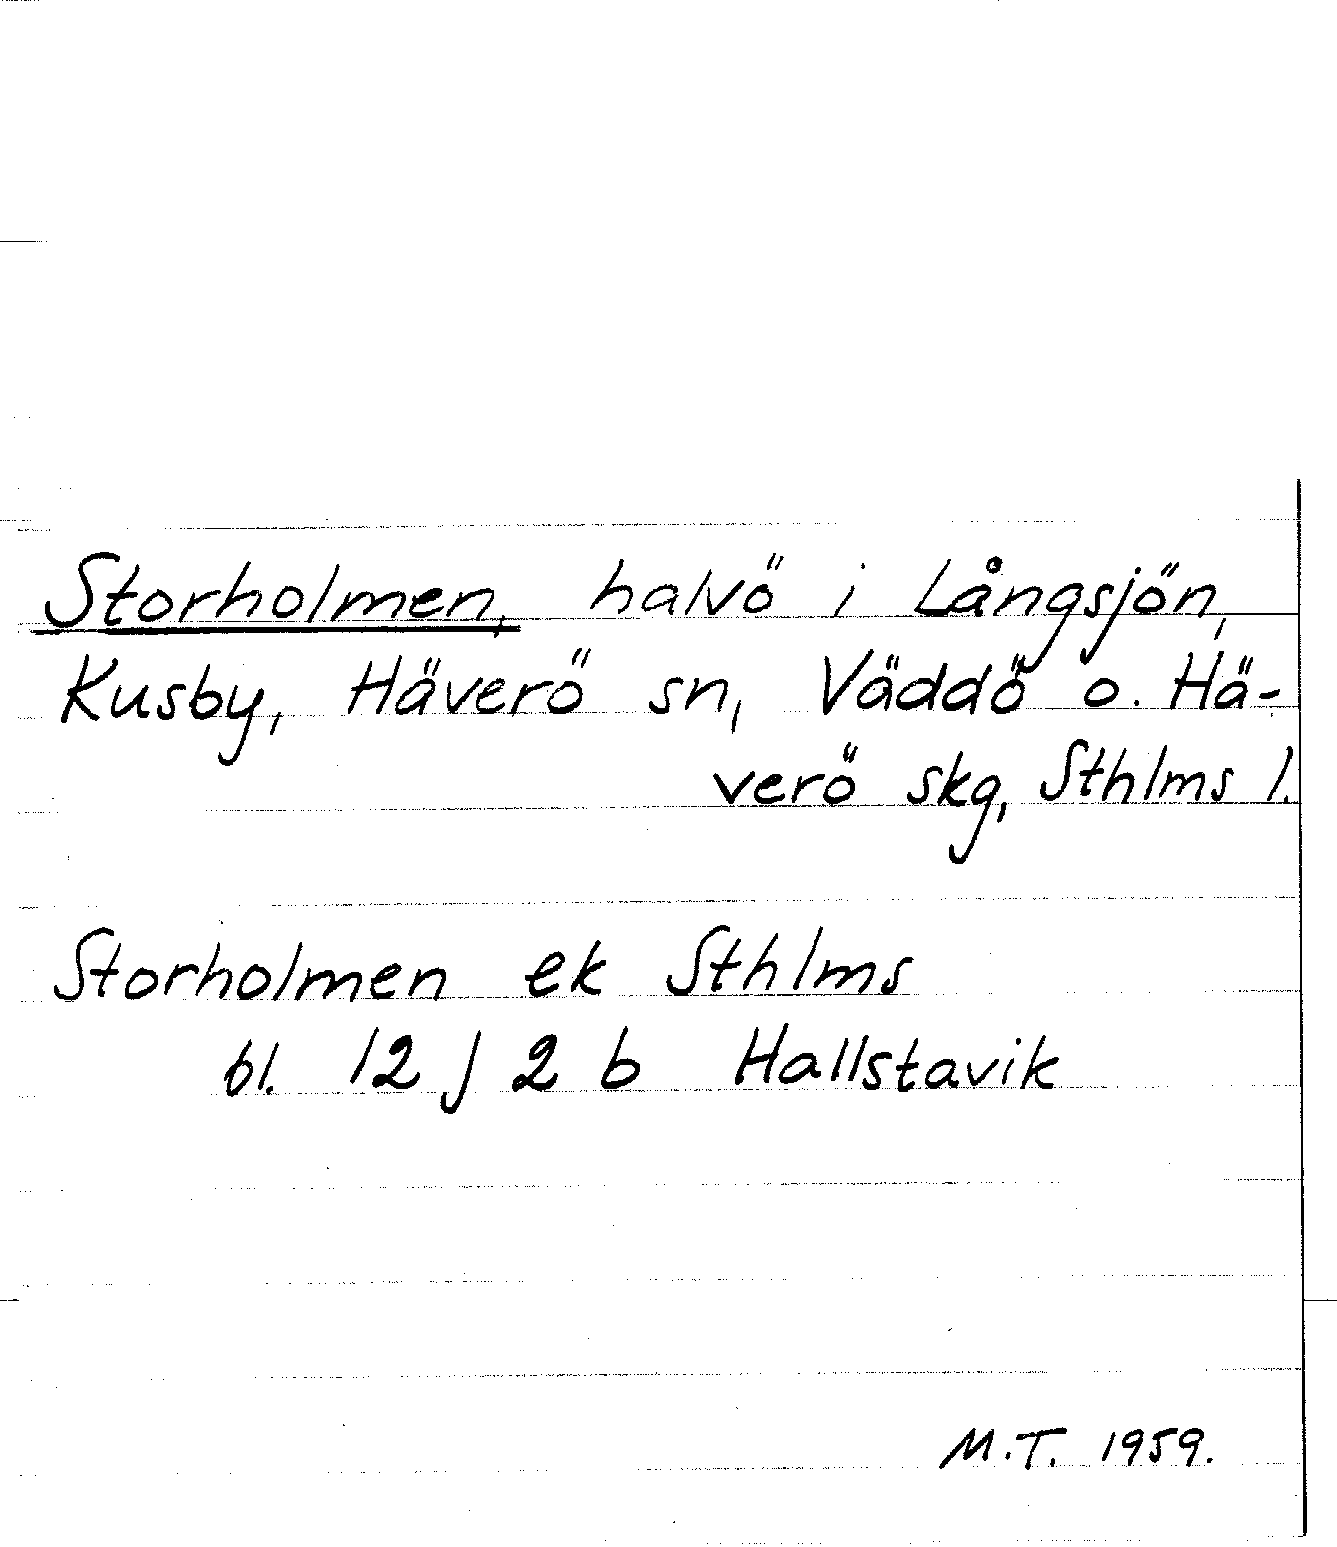 Storholmen, halvö i Långsjön,
Kusby, Häverö sn, Väddö o. Hä-
verö skg, Sthlms l.
Storholmen ek Sthlms
bl. 12 J 2 b Hallstavik
M.T. 1959.